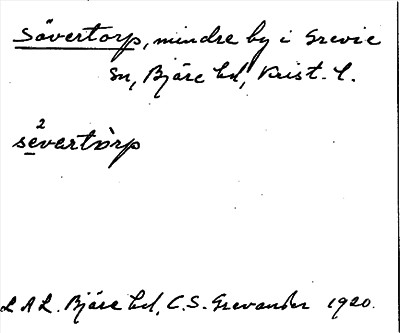 Sövertorp, mindre by i Grevie
sn, Bjäre hd, Krist. l.
2
sevartòrp
L A L. Bjäre hd, C. S. Grevander 1920.